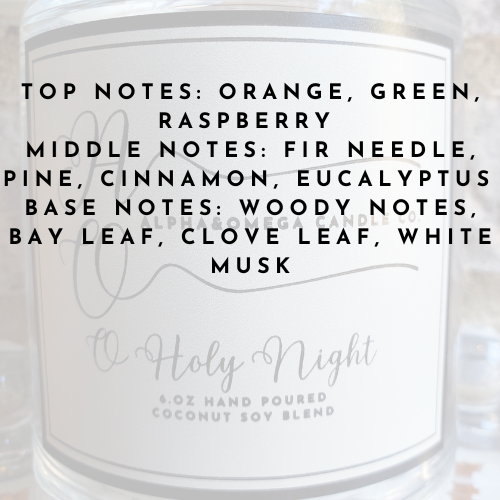 TOP NOTES: ORANGE, GREEN,
RASPBERRY
MIDDLE NOTES: FIR NEEDLE,
PINE, CINNAMON, EUCALYPTUS
BASE NOTES: WOODY NOTES,
BAY LEAF, CLOVE LEAF, WHITE
MUSK
A
ALPHA&OMEGA CANDLE CO.
O
O Holy Night
6.OZ HAND POURED
COCONUT SOY BLEND